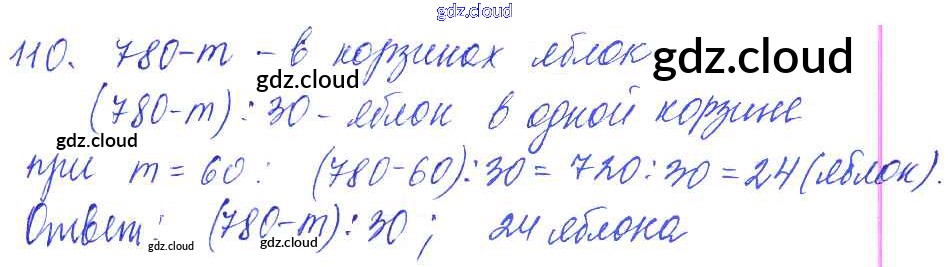 gdz.cloud
110. 780-m - в корзинах яблок gdz.cloud
gdz.cloud
(780-m):30 - яблок в одной корзине
gdz.cloud
при m = 60: (780-60):30 = 720:30 = 24 (яблок).
gdz.cloud
Ответ: (780-m):30; 24 яблока
gdz.cloud gdz.cloud gdz.cloud